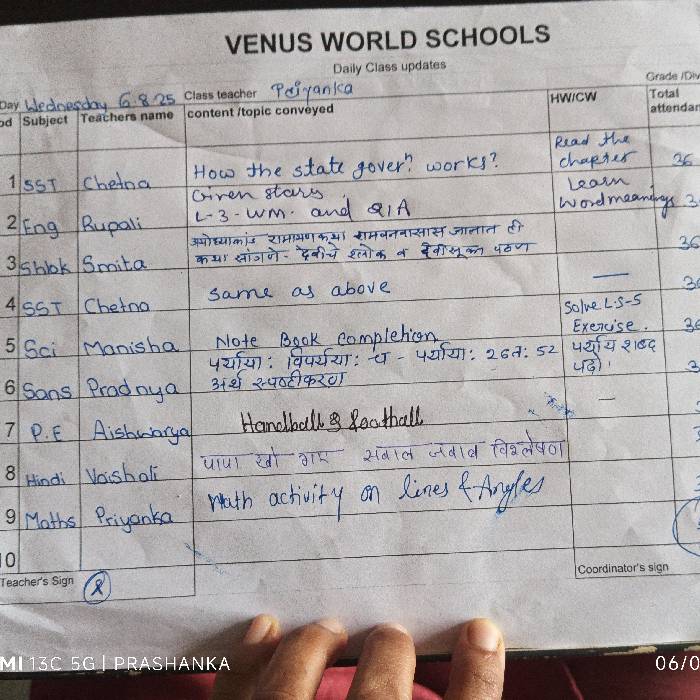 VENUS WORLD SCHOOLS
Daily Class updates
Day Wednesday 6.8.25 Class teacher Priyanka Grade /Div
od Subject Teachers name content /topic conveyed HW/CW Total attendan
1 SST Chetna How the state gover.n works? Read the chapter 36
Given stars.
2 Eng Rupali L-3-WM. and Q1A Learn Wordmeanings 3
3 Shlok Smita अयोध्याकांड रामायण कथा रामवनवासास जातात ही 36
कथा सांगणे - देवीचे श्लोक व देवीसूक्त पठण
4 SST Chetna same as above — 36
5 Sci Manisha Note Book Completion Solve L-5-5 Exercise. 36
6 Sans Pradnya पर्यायाः विपर्ययाः च - पर्यायाः 26तः 52 पर्याय शब्द पढ़ो। 3
अर्थ स्पष्टीकरण
7 P.E Aishwarya Handball & football —
8 Hindi Vaishali पापा खो गए सवाल जवाब विश्लेषण
9 Maths Priyanka Math activity on lines & Angles
10
Teacher's Sign Coordinator's sign
MI 13C 5G | PRASHANKA 06/0